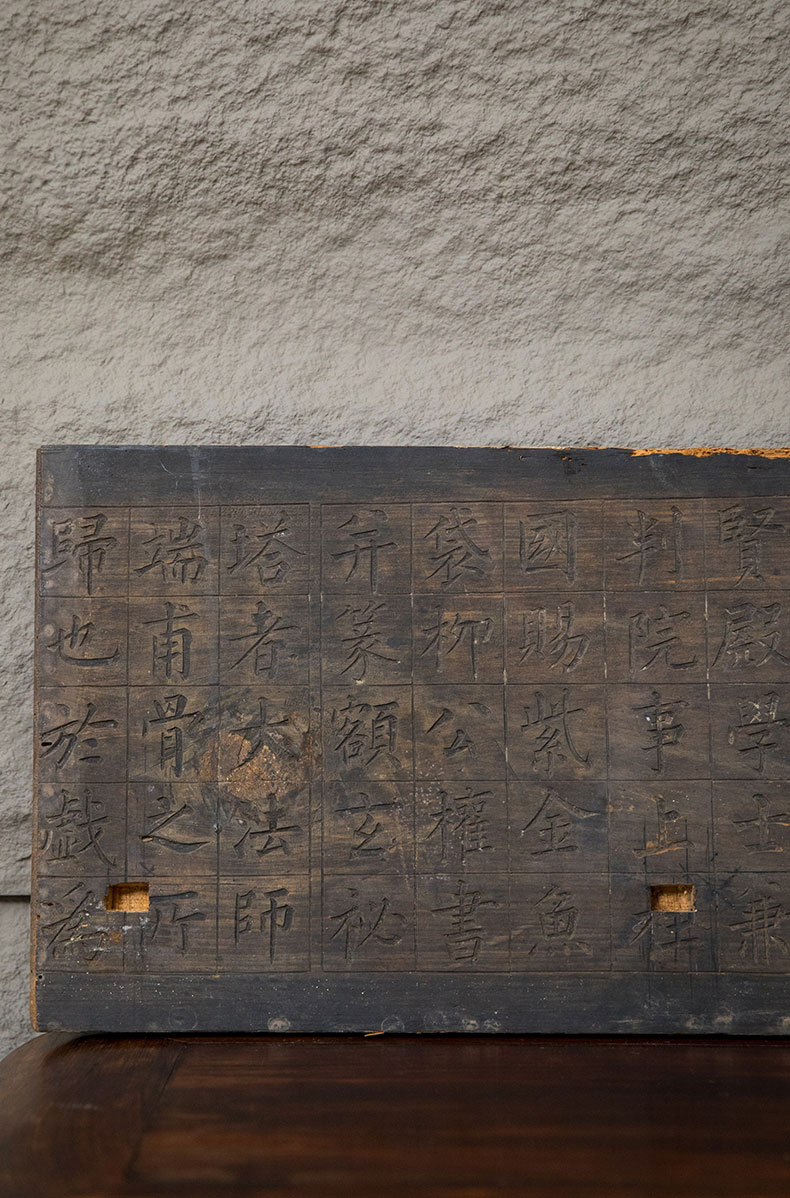 賢殿學士兼
判院事上柱
國賜紫金魚
袋柳公權書
并篆額玄秘
塔者大法師
端甫骨之所
歸也於戲為